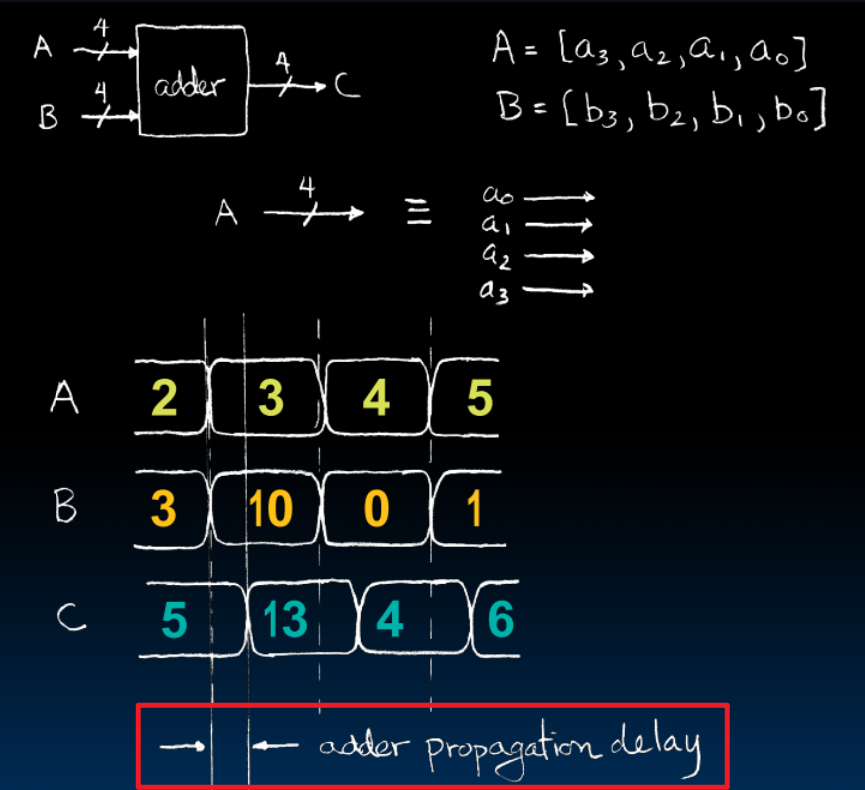 A 4 adder 4 C
B 4
A = [a₃, a₂, a₁, a₀]
B = [b₃, b₂, b₁, b₀]
A 4 ≡ a₀
a₁
a₂
a₃
A 2 3 4 5
B 3 10 0 1
C 5 13 4 6
→ ← adder propagation delay